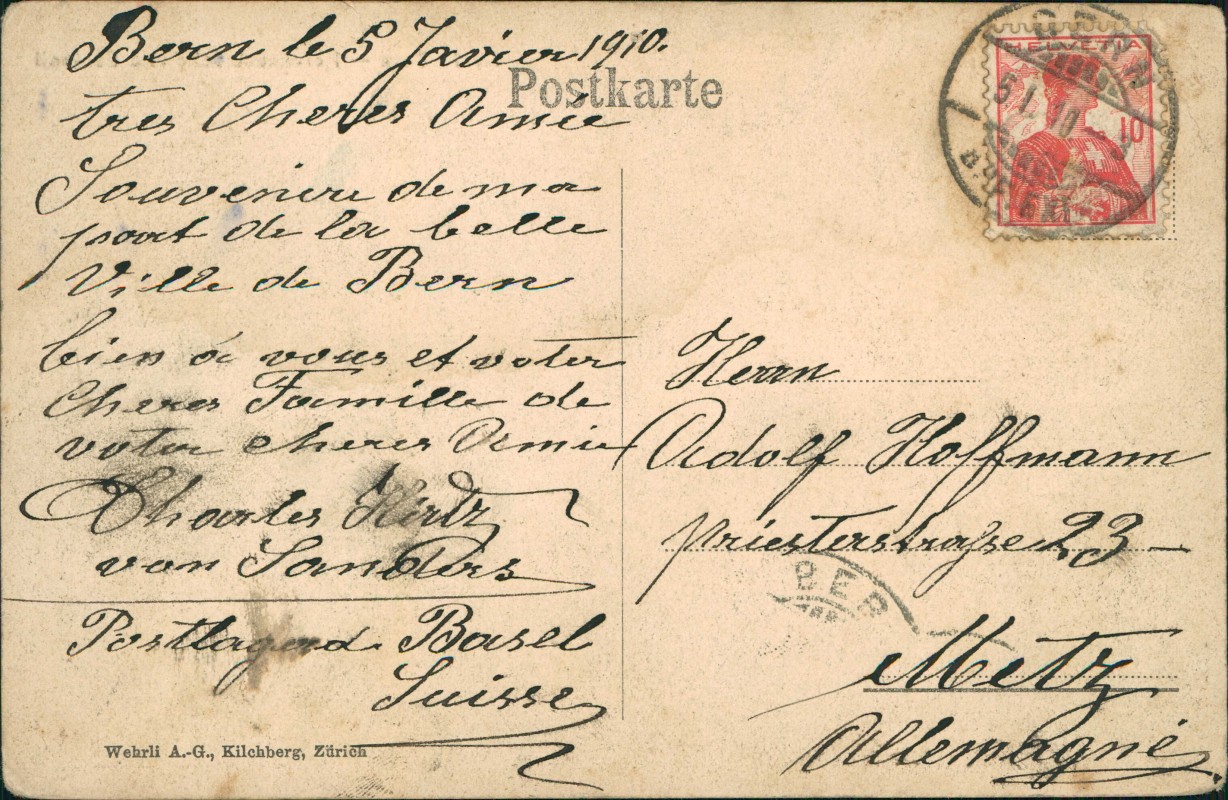 Bern le 5 Javier 1910.
Postkarte
tres Cheres Amie
Souvenire de ma
part de la belle
Ville de Bern
bien a vous et voter
Cheres Famille de
voter cheres Amie
Charles Hirtz
van Sanders
Postlagerd Basel
Suisse
Wehrli A.-G., Kilchberg, Zürich
HELVETIA
10
BERN
5.I.10
Herrn
Adolf Hoffmann
priesterstraße 23
BER
Metz
Allemagne